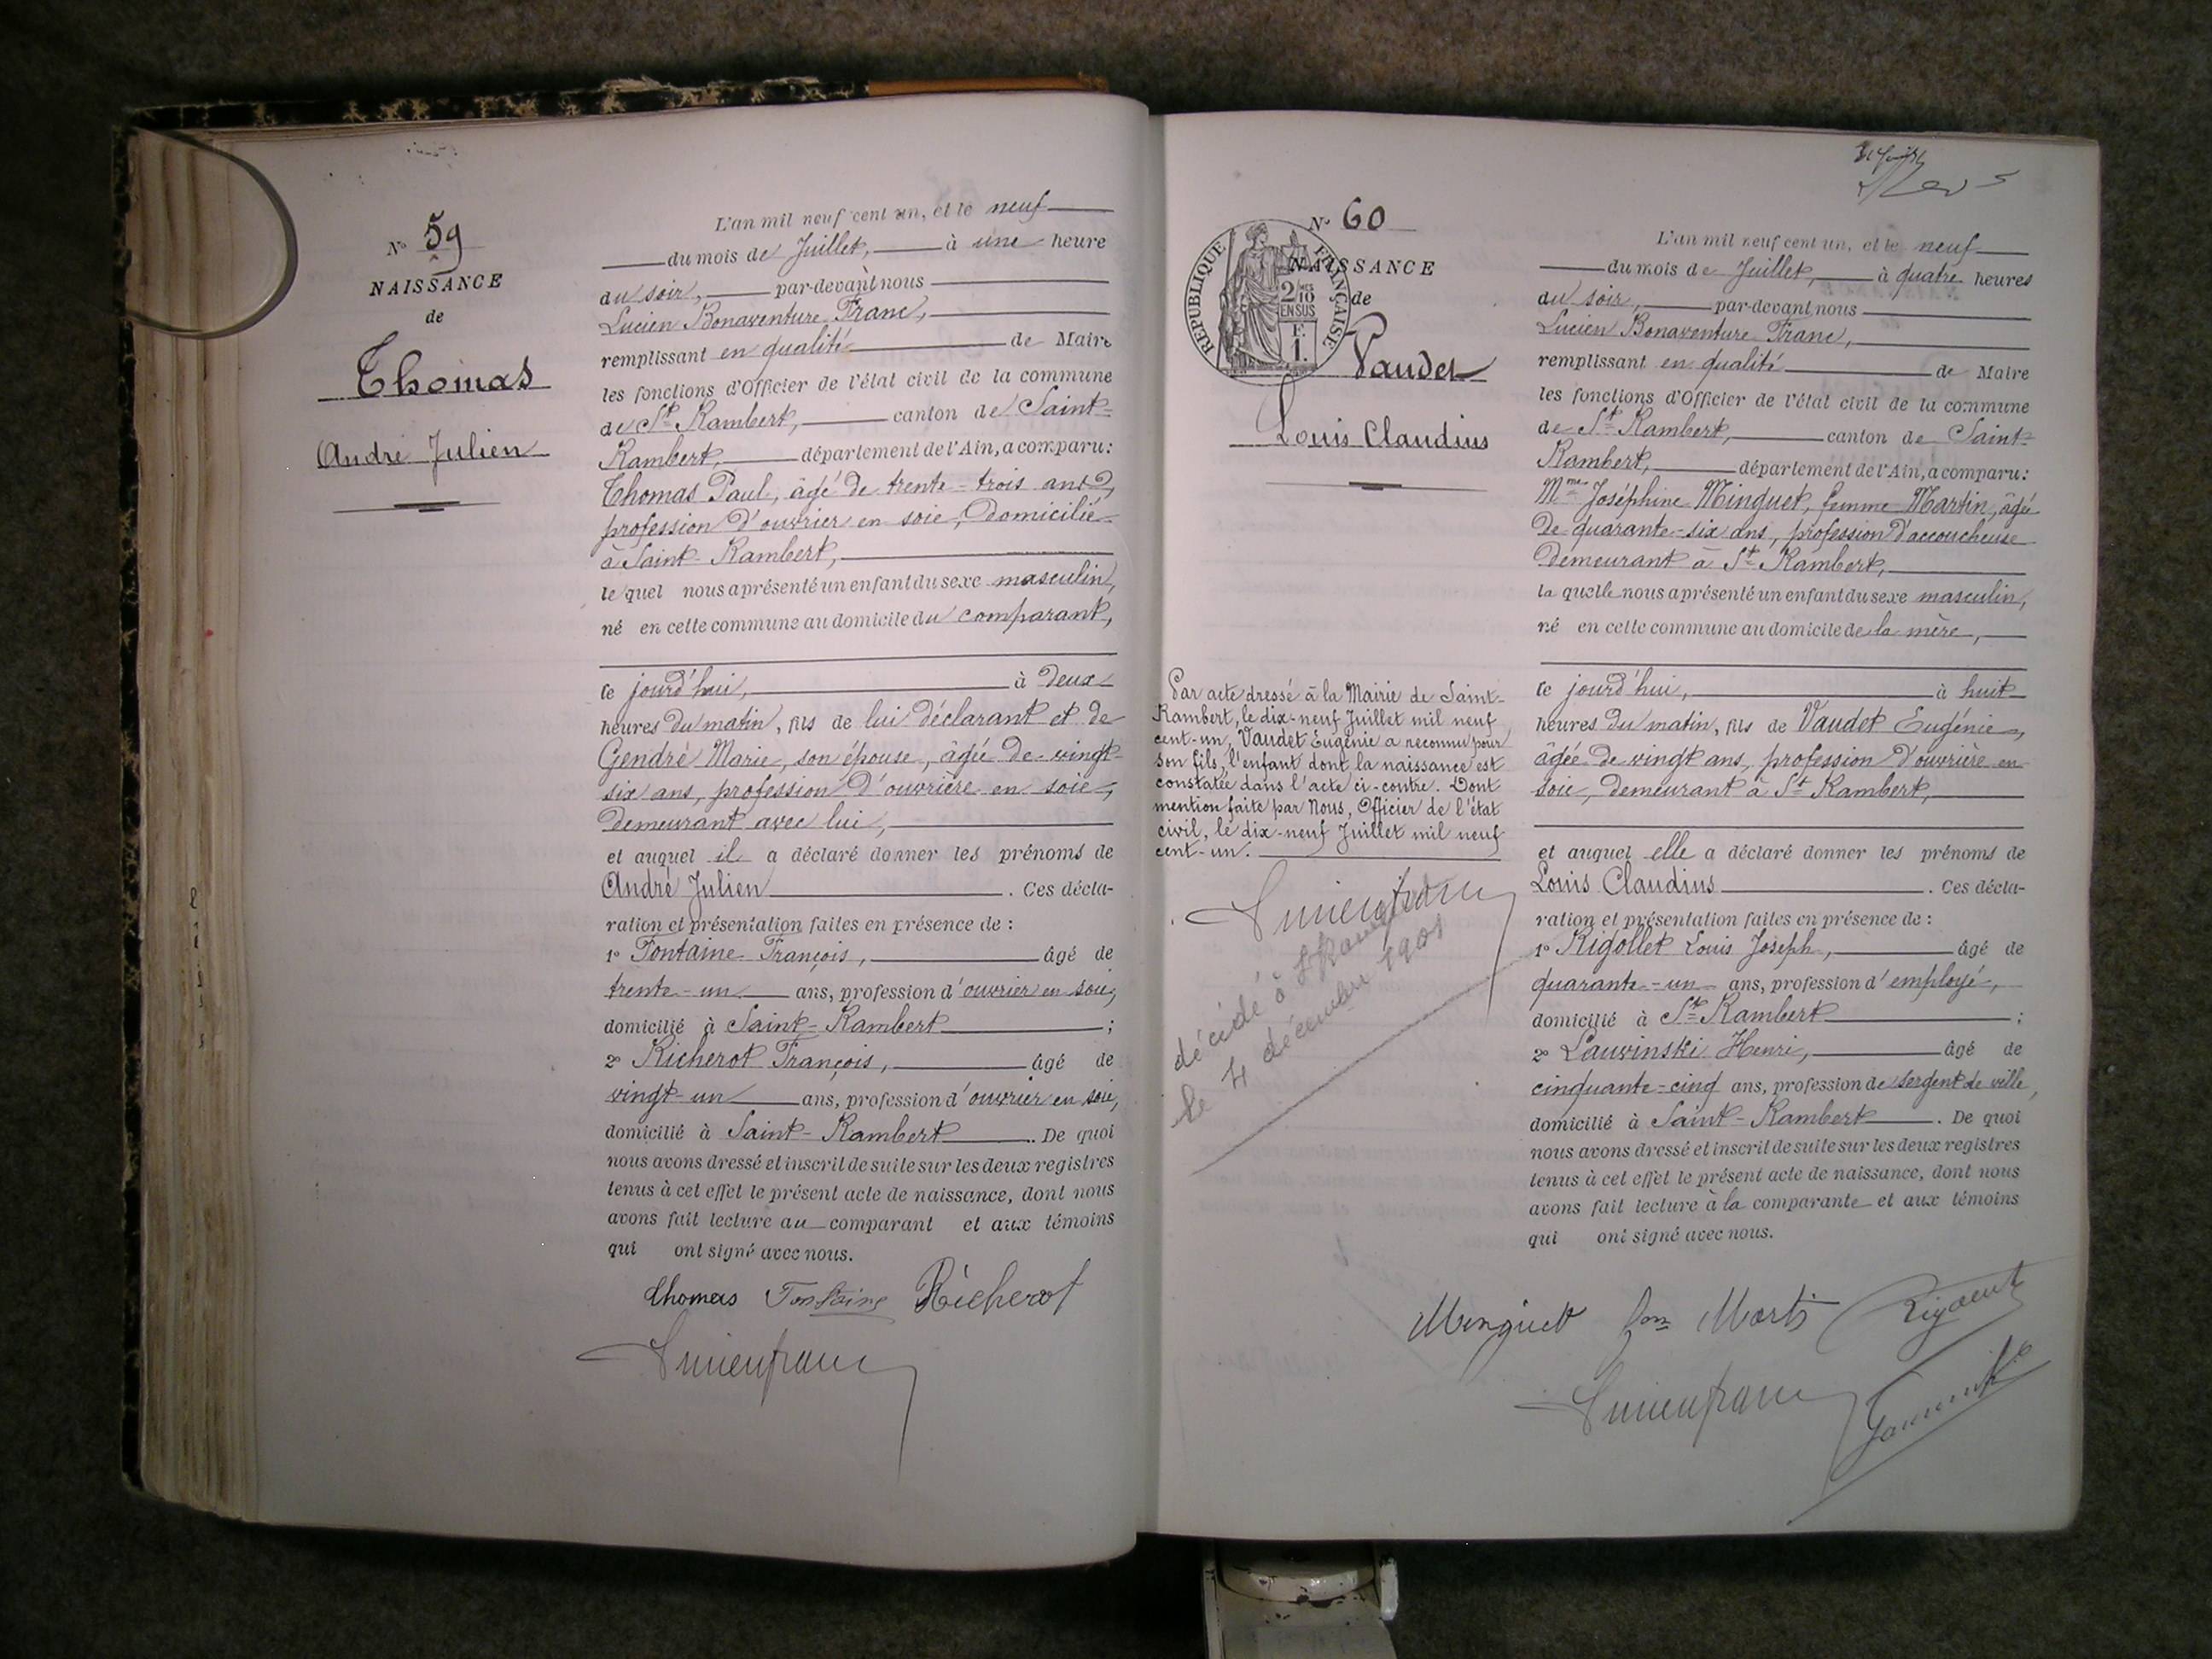 N° 59
NAISSANCE
de
Thomas
André Julien
L'an mil neuf cent un, et le neuf
du mois de Juillet, à une heure
du soir, par-devant nous
Lucien Bonaventure Franc,
remplissant en qualité de Maire
les fonctions d'Officier de l'état civil de la commune
de St Rambert, canton de Saint-
Rambert, département de l'Ain, a comparu:
Thomas Paul, âgé de trente-trois ans,
profession d'ouvrier en soie, domicilié
à Saint-Rambert,
le quel nous a présenté un enfant du sexe masculin,
né en cette commune au domicile du comparant,
ce jourd'hui, à deux
heures du matin, fils de lui déclarant et de
Gendre Marie, son épouse, âgée de vingt-
six ans, profession d'ouvrière en soie,
demeurant avec lui,
et auquel il a déclaré donner les prénoms de
André Julien. Ces décla-
ration et présentation faites en présence de :
1° Fontaine François, âgé de
trente-un ans, profession d'ouvrier en soie,
domicilié à Saint-Rambert ;
2° Richerot François, âgé de
vingt-un ans, profession d'ouvrier en soie,
domicilié à Saint-Rambert. De quoi
nous avons dressé et inscrit de suite sur les deux registres
tenus à cet effet le présent acte de naissance, dont nous
avons fait lecture au comparant et aux témoins
qui ont signé avec nous.
Thomas Fontaine Richerot
Lucien franc
N° 60
NAISSANCE
de
RÉPUBLIQUE FRANÇAISE
2/10 MES
EN SUS
F.
1.
Vaudet
Louis Claudius
Par acte dressé à la Mairie de Saint-
Rambert, le dix-neuf Juillet mil neuf
cent-un, Vaudet Eugénie a reconnu pour
son fils, l'enfant dont la naissance est
constatée dans l'acte ci-contre. Dont
mention faite par Nous, Officier de l'état
civil, le dix-neuf Juillet mil neuf
cent-un.
Lucien franc
décédé à St Rambert
le 4 décembre 1901
L'an mil neuf cent un, et le neuf
du mois de Juillet, à quatre heures
du soir, par-devant nous
Lucien Bonaventure Franc,
remplissant en qualité de Maire
les fonctions d'Officier de l'état civil de la commune
de St Rambert, canton de Saint-
Rambert, département de l'Ain, a comparu:
Mme Joséphine Minguet, femme Martin, âgée
de quarante-six ans, profession d'accoucheuse
demeurant à St Rambert,
la quelle nous a présenté un enfant du sexe masculin,
né en cette commune au domicile de la mère,
ce jourd'hui, à huit
heures du matin, fils de Vaudet Eugénie,
âgée de vingt ans, profession d'ouvrière en
soie, demeurant à St Rambert,
et auquel elle a déclaré donner les prénoms de
Louis Claudius. Ces décla-
ration et présentation faites en présence de :
1° Rigollet Louis Joseph, âgé de
quarante-un ans, profession d'employé,
domicilié à St Rambert ;
2° Lauvinski Henri, âgé de
cinquante-cinq ans, profession de sergent de ville,
domicilié à Saint-Rambert. De quoi
nous avons dressé et inscrit de suite sur les deux registres
tenus à cet effet le présent acte de naissance, dont nous
avons fait lecture à la comparante et aux témoins
qui ont signé avec nous.
Minguet fem Martin
Lucien franc